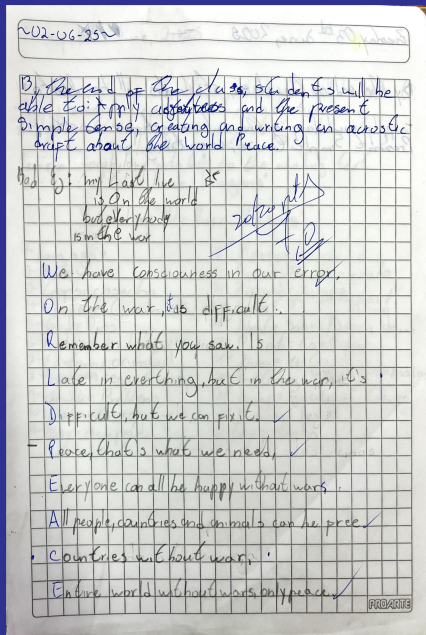 ~02-06-25~
By the end of the class, students will be
able to: Apply and the present
Simple tense, creating and writing an acrostic
draft about the world Peace.
my Last live
is On the world
but everybody
is in the war
We have consciouness in our error,
On the war, is difficult.
Remember what you saw. Is
Late in everthing, but in the war, it's
Difficult, but we can fix it.
Peace, that's what we need,
Everyone can all be happy without wars.
All people, countries and animals can be free
Countries without war,
Entire world without wars, only peace
PROARTE